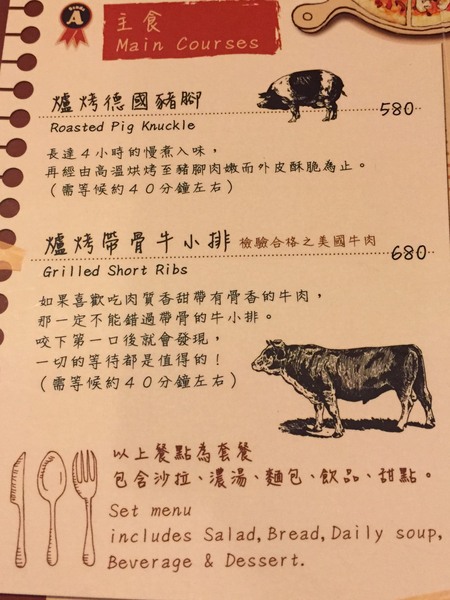 A
主食
Main Courses
爐烤德國豬腳 580
Roasted Pig Knuckle
長達4小時的慢煮入味，
再經由高溫烘烤至豬腳肉嫩而外皮酥脆為止。
（需等候約40分鐘左右）
爐烤帶骨牛小排 檢驗合格之美國牛肉 680
Grilled Short Ribs
如果喜歡吃肉質香甜帶有骨香的牛肉，
那一定不能錯過帶骨的牛小排。
咬下第一口後就會發現，
一切的等待都是值得的！
（需等候約40分鐘左右）
以上餐點為套餐
包含沙拉、濃湯、麵包、飲品、甜點。
Set menu
includes Salad, Bread, Daily soup,
Beverage & Dessert.